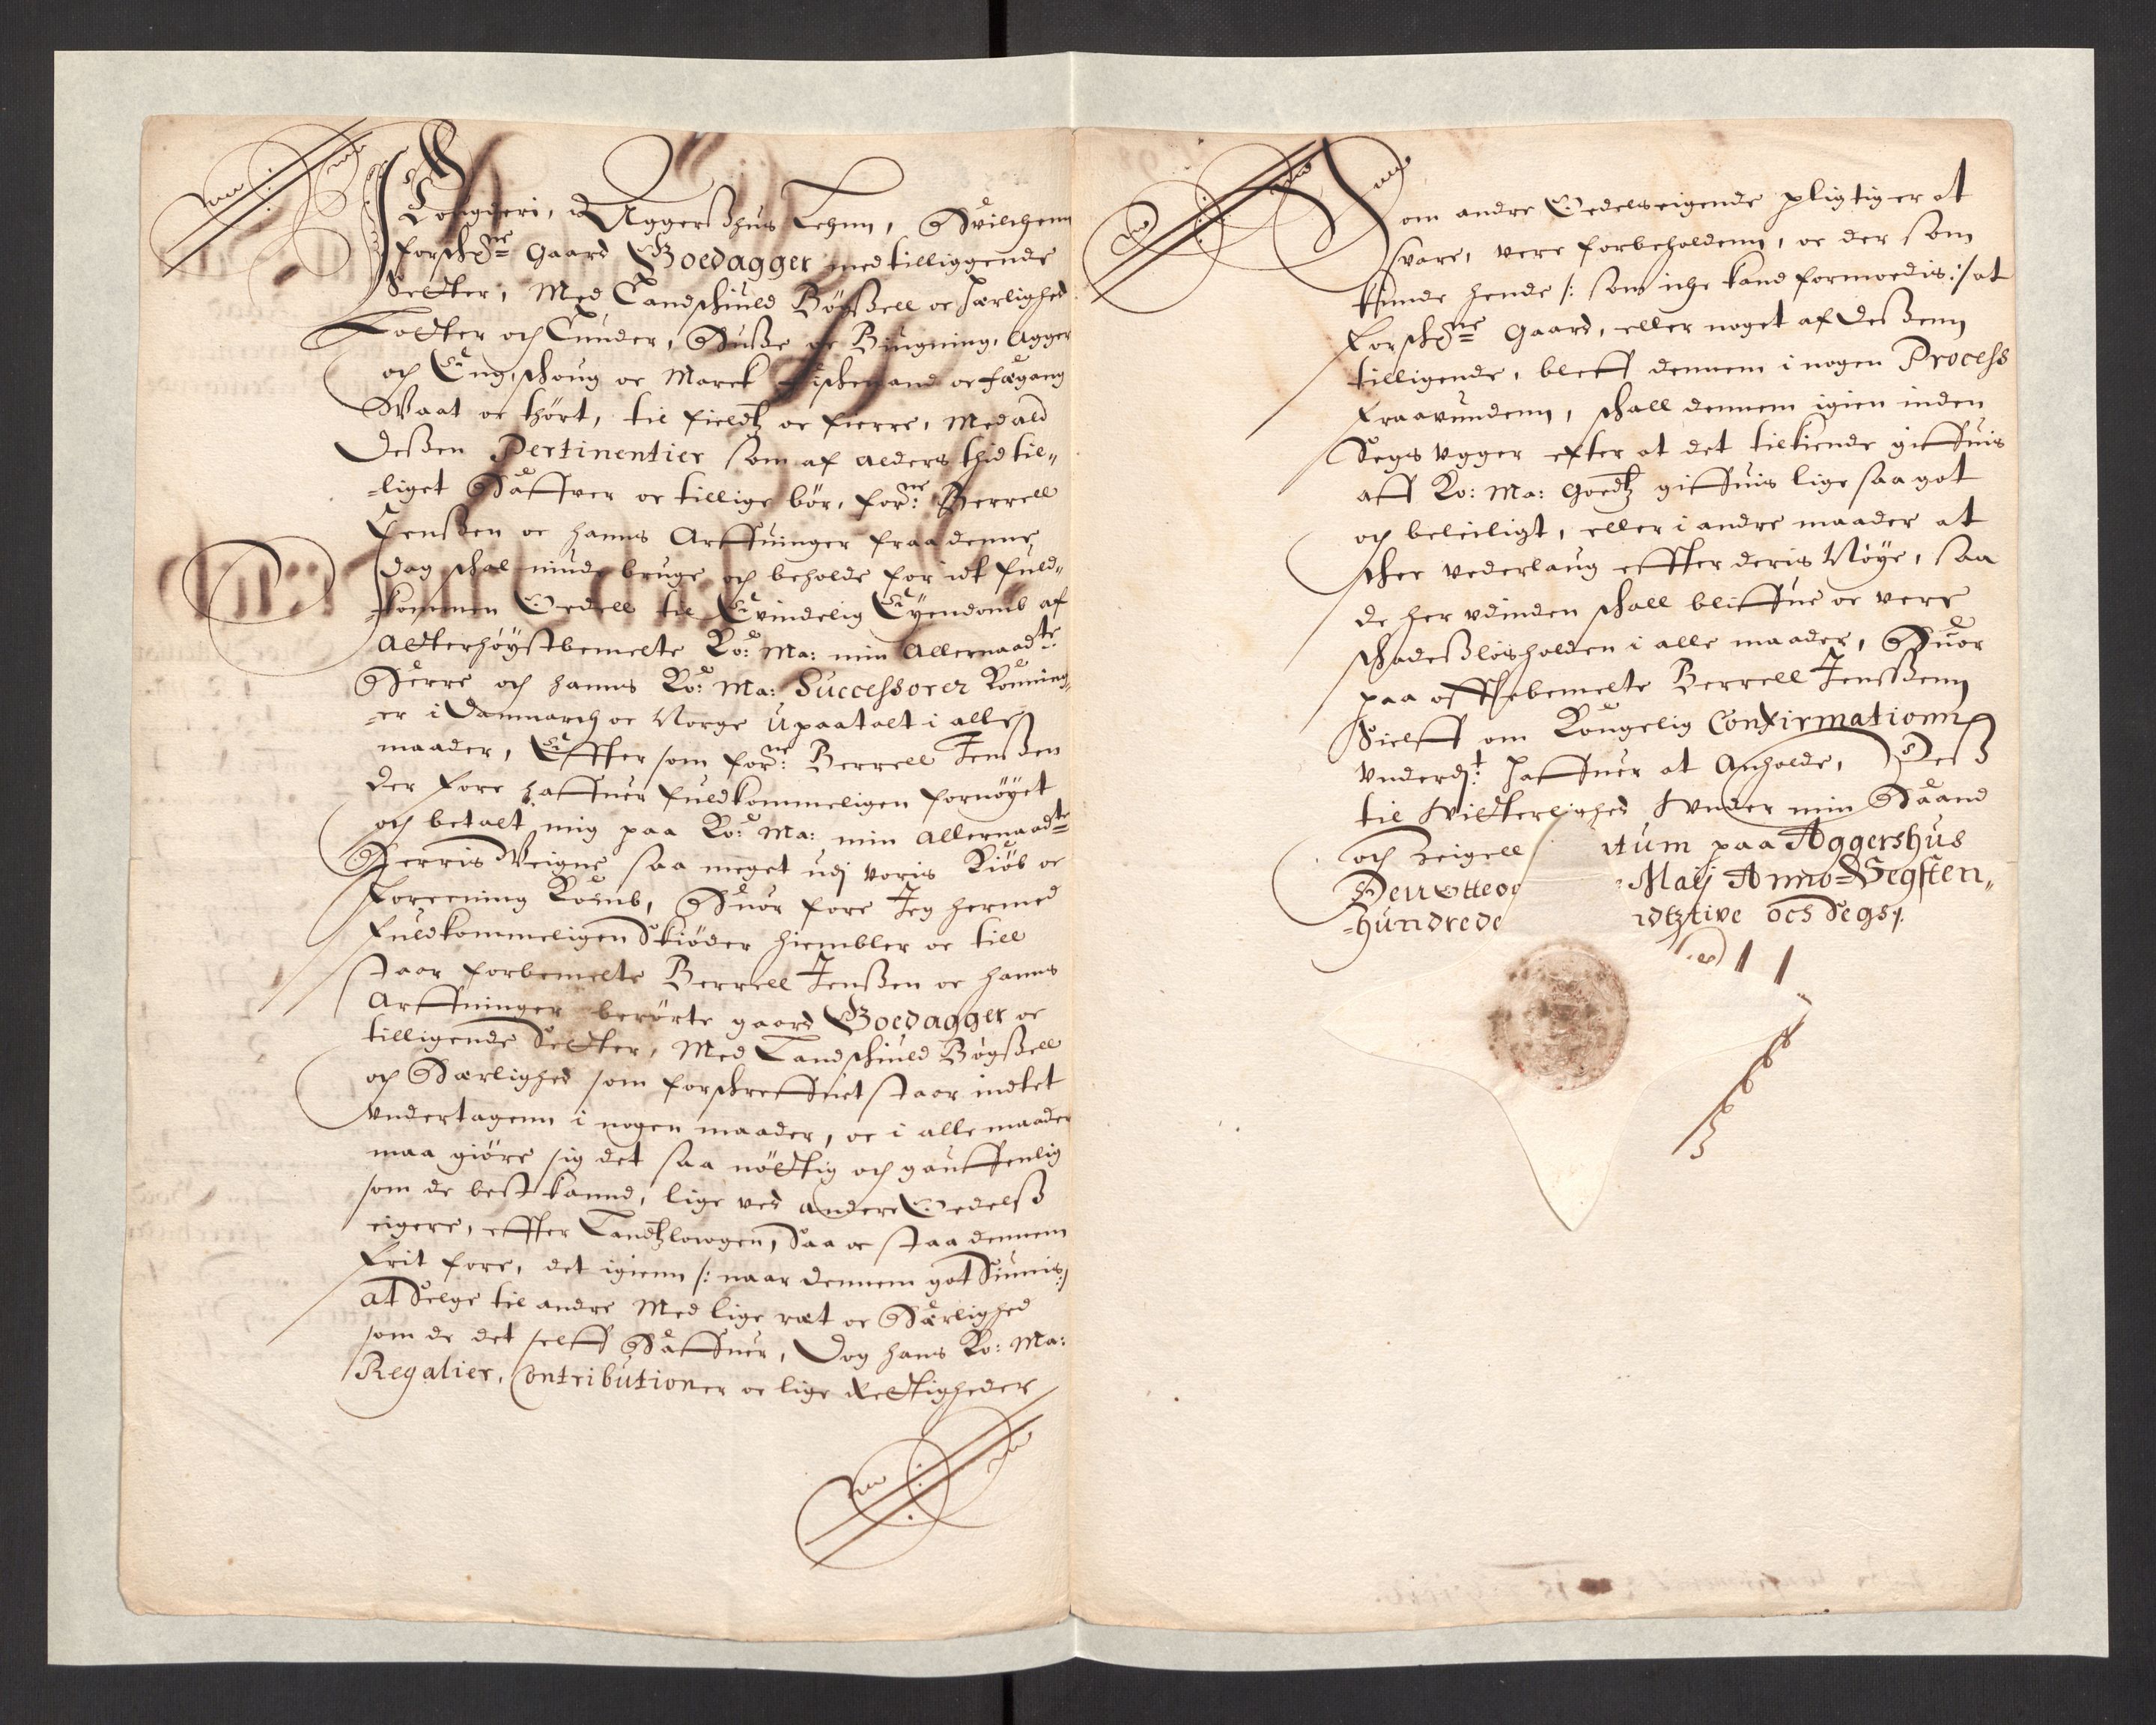 Fougderi, i Aggerßhus Lehnn, Huilchenn
forschr:ne Gaard Boedagger med tilliggende
Setter, Med Landschiuld Bögßell oc herlighed
Lotter och Lunder, Huße oc Biugning, Agger
och Eng, schoug oc Marck Fischevand oc fægang
Waat oc thört, til fieldtz oc fierre, Med ald
Deßen Pertinentier som af Alders thid til„
„liget Haffver oc tillige bör, for:ne Berrell
Jenßen oc hanns Arffuinger fraa denne
dag schal niude bruge och beholde for idt fuld„
kommen Oedell til Evindelig Eyendomb af
Alterhöystbemelte Ko: Ma: min Allernaad:te
Herre och hanns Ko: Ma: Successorer Konning„
„er i Danmarch oc Norge Upaatalt i alle
maader, Effter som for:ne Berrell Jenßen
der fore haffuer fuldkommeligen fornöyet
och betalt mig paa Ko: Ma: min Allernaad:te
Herris Veigne saa meget udj voris Kiöb oc
foreening Komb, Huor fore Jeg hermed
fuldkommeligen Skiöder hiembler oc till
staar forbemelte Berrell Jenßen oc hanns
Arffuinger berörte gaard Boedagger oc
tilligende Setter, Med Landschiuld Bögßell
och Herlighed som forschreffuet staar indtet
undertagenn i nogen maader, oc i alle maader
maa giöre sig det saa nöttig och gauffenlig
som de best kannd, lige ved andere Oedelß
eigere, effter Landtzlowgen, Saa oc staa dennem
frit fore, det igienn /: naar dennem got Siunis :/
At Selge til andre Med lige ræt oc Herlighed
som de det selff Haffuer, Dog hans Ko: Ma:
Regalier, Contributioner oc lige Rettigheder
Som andre Oedelseigende pligtig er at
svare, vere forbeholdenn, oc der som
kunde hende /: som iche kand formoedis :/ at
forschr:ne Gaard, eller noget af deßenn
tilligende, bleff dennem i nogen Process
fraavundenn, schall dennem igien inden
Segs Ugger efter at det tilkiende giffuis
aff Ko: Ma: Goedtz giffuis lige saa got
och beleiligt, eller i andre maader at
schee vederlaug effter deris Nöye, saa
de her vdinden schall bliffue oc vere
schadeßlösholden i alle maader, Huor
paa offtebemelte Berrell Jenßenn
Sielff om Kongelig Confirmationn
underd:t haffuer at Anholde, Deß
til Vitterlighed Under min Haand
och Zeigell tum paa Aggershus
Den otteo Maij Anno Segsten„
„hundrede dtztive och Segs/.